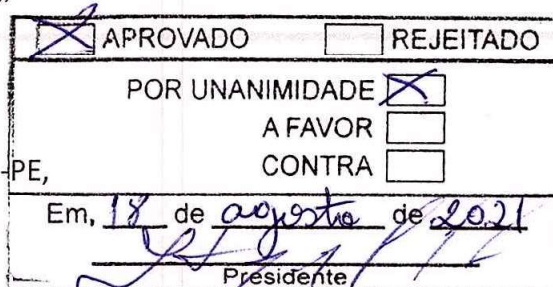 APROVADO REJEITADO
POR UNANIMIDADE
A FAVOR
-PE,
CONTRA
Em, 18 de agosto de 2021
Presidente